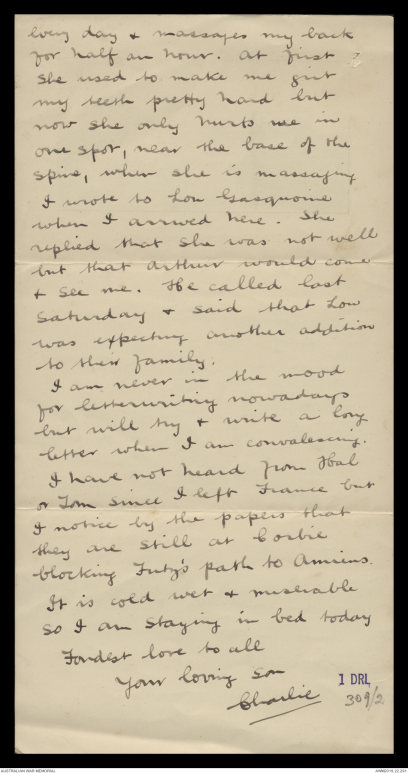 every day & massages my back
for half an hour. At first
she used to make me grit
my teeth pretty hard but
now she only hurts me in
one spot, near the base of the
spine, when she is massaging
I wrote to Lou Gasquoine
when I arrived here. She
replied that she was not well
but that Arthur would come
& see me. He called last
Saturday & said that Lou
was expecting another addition
to their family.
I am never in the mood
for letterwriting nowadays
but will try & write a long
letter when I am convalescing.
I have not heard from Hal
or Tom since I left France but
I notice by the papers that
they are still at Corbie
blocking Fritz's path to Amiens.
It is cold wet & miserable
so I am staying in bed today
Fondest love to all
Your loving son
Charlie
1 DRL
309/2
AUSTRALIAN WAR MEMORIAL